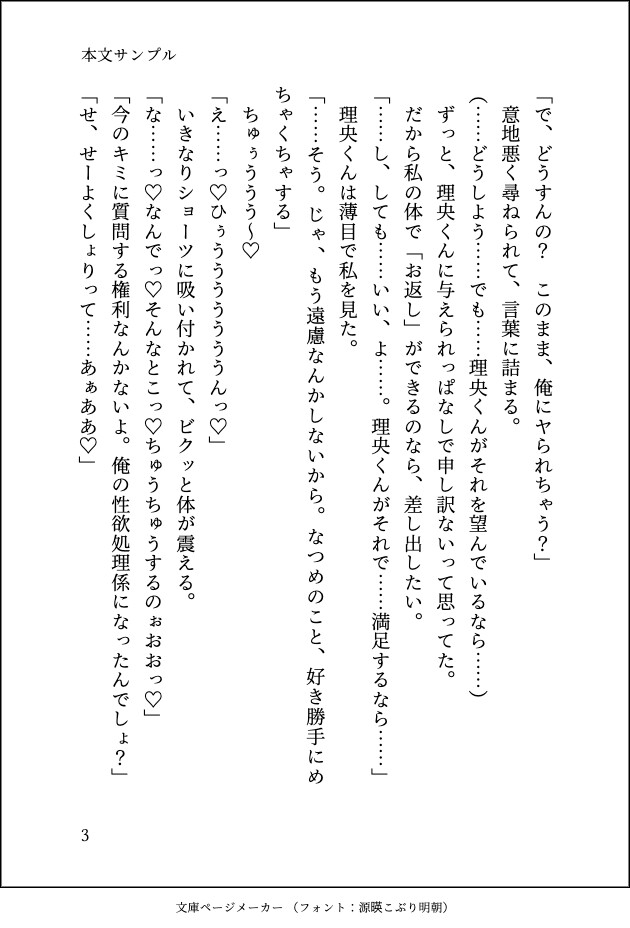 本文サンプル
「で、どうすんの？　このまま、俺にヤられちゃう？」
意地悪く尋ねられて、言葉に詰まる。
(……どうしよう……でも……理央くんがそれを望んでいるなら……)
ずっと、理央くんに与えられっぱなしで申し訳ないって思ってた。
だから私の体で「お返し」ができるのなら、差し出したい。
「……し、しても……いい、よ……。理央くんがそれで……満足するなら……」
理央くんは薄目で私を見た。
「……そう。じゃ、もう遠慮なんかしないから。なつめのこと、好き勝手にめ
ちゃくちゃする」
ちゅぅううう～♡
「え……っ♡ひぅうううううううんっ♡」
いきなりショーツに吸い付かれて、ビクッと体が震える。
「な……っ♡なんでっ♡そんなとこっ♡ちゅうちゅうするのぉおおっ♡」
「今のキミに質問する権利なんかないよ。俺の性欲処理係になったんでしょ？」
「せ、せーよくしょりって……あぁああ♡」
3
文庫ページメーカー （フォント：源暎こぶり明朝）